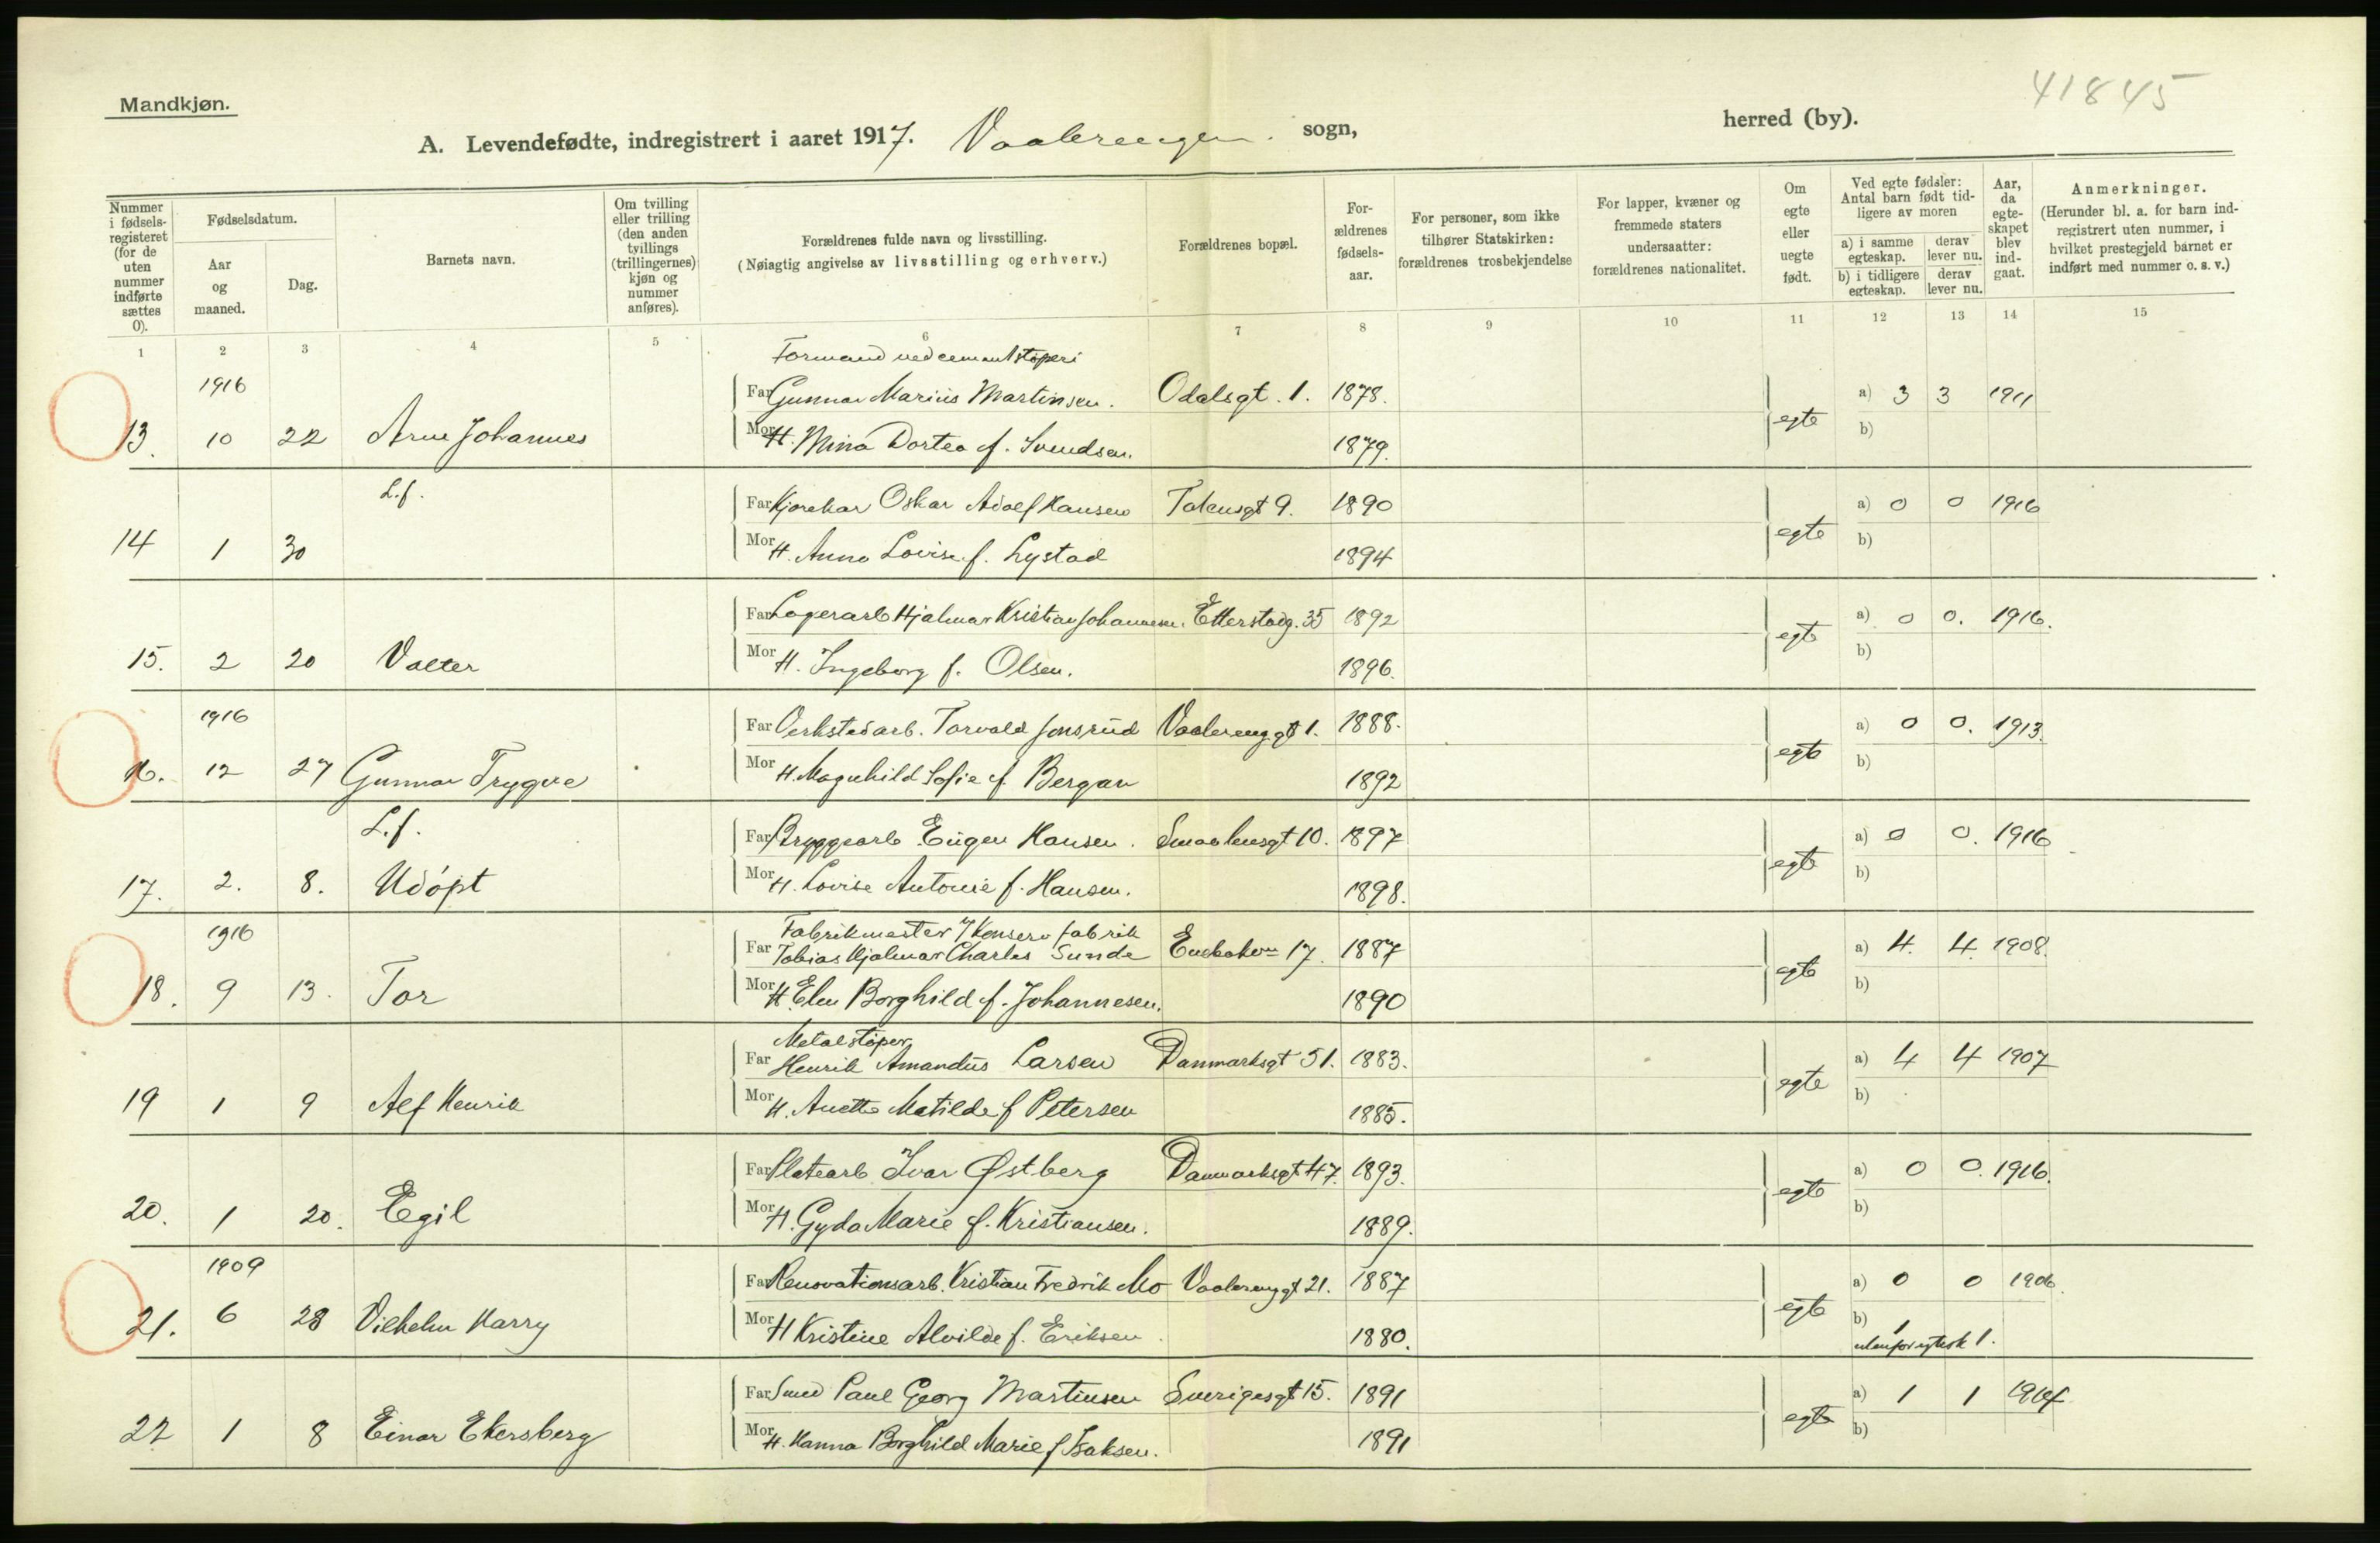 41845
Mandkjøn.
A. Levendefødte, indregistrert i aaret 1917. Vaalerengen sogn, herred (by).
Nummer i fødsels-registeret (for de uten nummer indførte sættes 0).
Fødselsdatum.
Aar og maaned.
Dag.
Barnets navn.
Om tvilling eller trilling (den anden tvillings (trillingernes) kjøn og nummer anføres).
Forældrenes fulde navn og livsstilling.
(Nøiagtig angivelse av livsstilling og erhverv.)
Forældrenes bopæl.
For-ældrenes fødsels-aar.
For personer, som ikke tilhører Statskirken: forældrenes trosbekjendelse
For lapper, kvæner og fremmede staters undersaatter: forældrenes nationalitet.
Om egte eller uegte født.
Ved egte fødsler: Antal barn født tid-ligere av moren
a) i samme egteskap. derav lever nu.
b) i tidligere egteskap. derav lever nu.
Aar, da egte-skapet blev ind-gaat.
Anmerkninger.
(Herunder bl. a. for barn ind-registrert uten nummer, i hvilket prestegjeld barnet er indført med nummer o. s. v.)
1 2 3 4 5 6 7 8 9 10 11 12 13 14 15
Formand ved cementstøperi
1916 Far Gunnar Marius Martinsen. Odalsgt. 1. 1878. a) 3 3 1911
13. 10 22 Arne Johannes Mor H. Mina Dortea f. Svendsen. 1879. egte b)
L.f. Far Kjørekar Oskar Adolf Hansen Totensgt 9. 1890 a) 0 0 1916
14 1 30 Mor H. Anna Lovise f. Lystad 1894 egte b)
Far Lagerarb Hjalmar Kristian Johannesen. Etterstadg. 35 1892 a) 0 0. 1916.
15. 2 20 Valter Mor H. Ingeborg f. Olsen. 1896. egte b)
1916 Far Verkstedarb. Torvald Jonsrud Vaalerenggt 1. 1888. a) 0 0. 1913.
16. 12 27 Gunnar Trygve Mor H. Magnhild Sofie f. Bergan 1892 egte b)
L.f. Far Bryggearb Eugen Hansen. Smaalensgt 10. 1897 a) 0 0. 1916
17. 2. 8. Udøpt Mor H. Lovise Antonie f. Hansen. 1898. egte b)
Fabrikmester v/ Konserv fabrik
1916 Far Tobias Hjalmar Charles Sunde 17. 1887 a) 4. 4. 1908.
18. 9 13. Tor Mor H. Elen Borghild f. Johannesen. 1890 egte b)
Metalstøper
Far Henrik Amandus Larsen Danmarksgt 51. 1883. a) 4 4 1907
19 1 9 Alf Henrik Mor H. Anette Matilde f Petersen 1885. egte b)
Far Platearb Ivar Østberg Danmarksgt 47. 1893. a) 0 0. 1916.
20. 1 20. Egil Mor H. Gyda Marie f. Kristiansen. 1889. egte b)
1909 Far Renovationsarb. Kristian Fredrik Mo Vaalerenggt 21. 1887 a) 0 0 1906.
21. 6 28 Vilhelm Harry Mor H Kristine Alvilde f. Eriksen. 1880. egte b) 1
utenfor egtesk 1.
Far Smed Paul Georg Martinsen Sverigesgt 15. 1891 a) 1 1 1914
22 1 8 Einar Ekersberg Mor H. Hanna Borghild Marie f Isaksen. 1891 egte b)